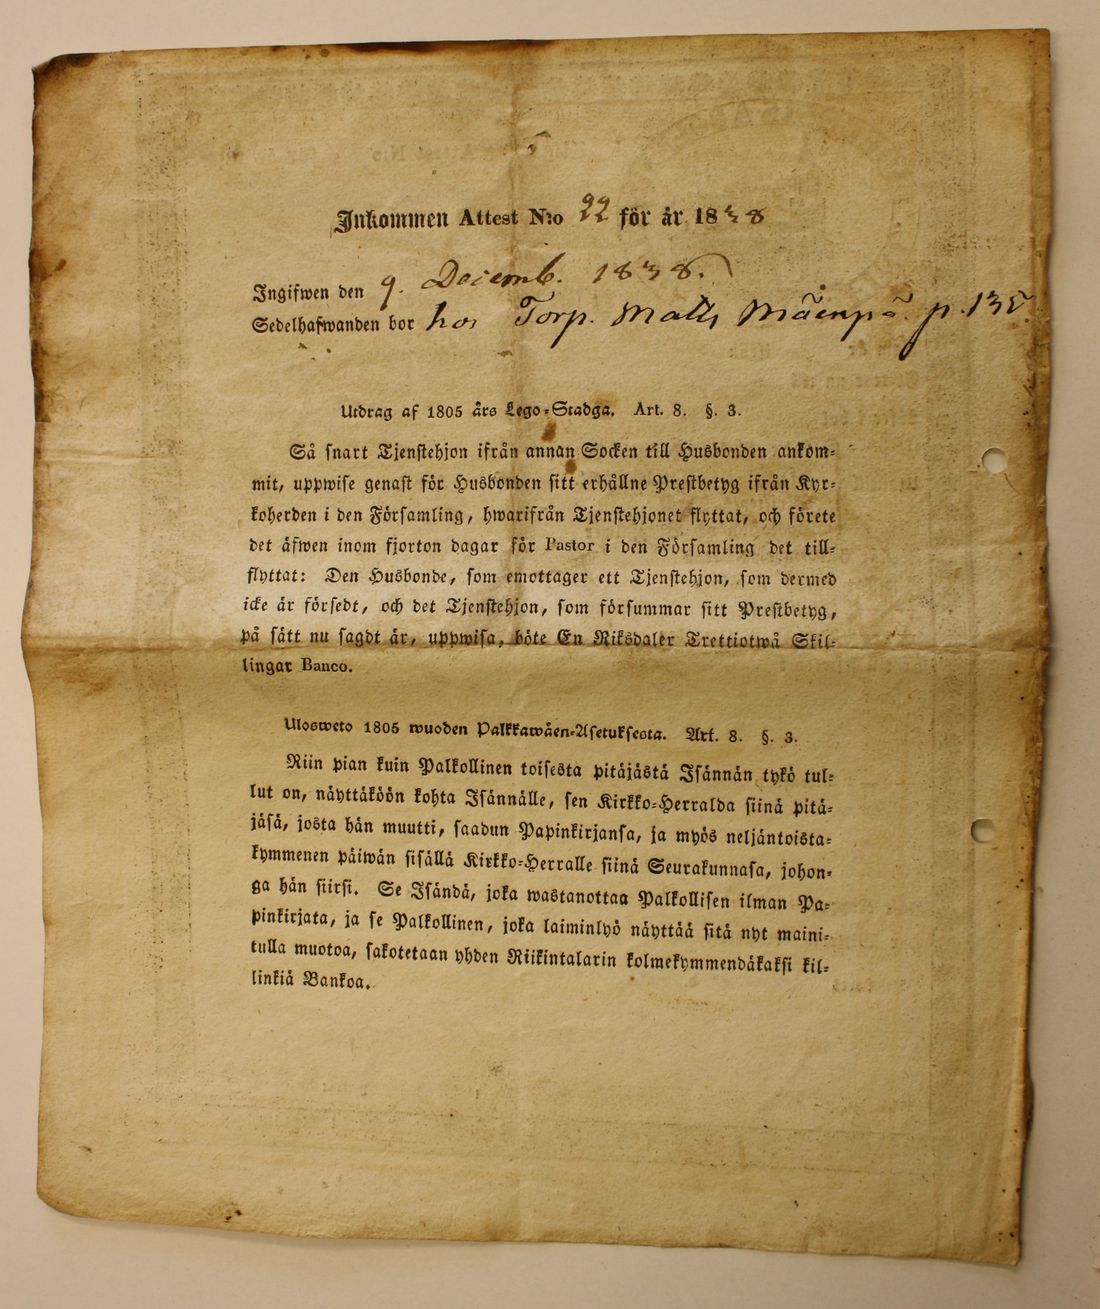 Inkommen Attest N:o 22 för år 1838
Ingifwen den 9. Decemb. 1838.
Sedelhafwanden bor hos Torp. Matts Mäenpä. p. 135
Utdrag af 1805 års Lego-Stadga. Art. 8. §. 3.
Så snart Tjenstehjon ifrån annan Socken till Husbonden ankom-
mit, uppwise genast för Husbonden sitt erhållne Prestbetyg ifrån Kyr-
koherden i den Församling, hwarifrån Tjenstehjonet flyttat, och förete
det äfwen inom fjorton dagar för Pastor i den Församling det till-
flyttat: Den Husbonde, som emottager ett Tjenstehjon, som dermed
icke är försedt, och det Tjenstehjon, som försummar sitt Prestbetyg,
på sätt nu sagdt är, uppwisa, böte En Riksdaler Trettiotwå Skil-
lingar Banco.
Ulosweto 1805 wuoden Palkkawäen-Asetuksesta. Art. 8. §. 3.
Niin pian kuin Palkollinen toisesta pitäjästä Isännän tykö tul-
lut on, näyttäköön kohta Isännälle, sen Kirkko-Herralda siinä pitä-
jäsä, josta hän muutti, saadun Papinkirjansa, ja myös neljäntoista-
kymmenen päiwän sisällä Kirkko-Herralle siinä Seurakunnasa, johon-
ga hän siirsi. Se Isändä, joka wastanottaa Palkollisen ilman Pa-
pinkirjata, ja se Palkollinen, joka laiminlyö näyttää sitä nyt maini-
tulla muotoa, sakotetaan yhden Riikintalarin kolmekymmendäkaksi kil-
linkiä Bankoa.